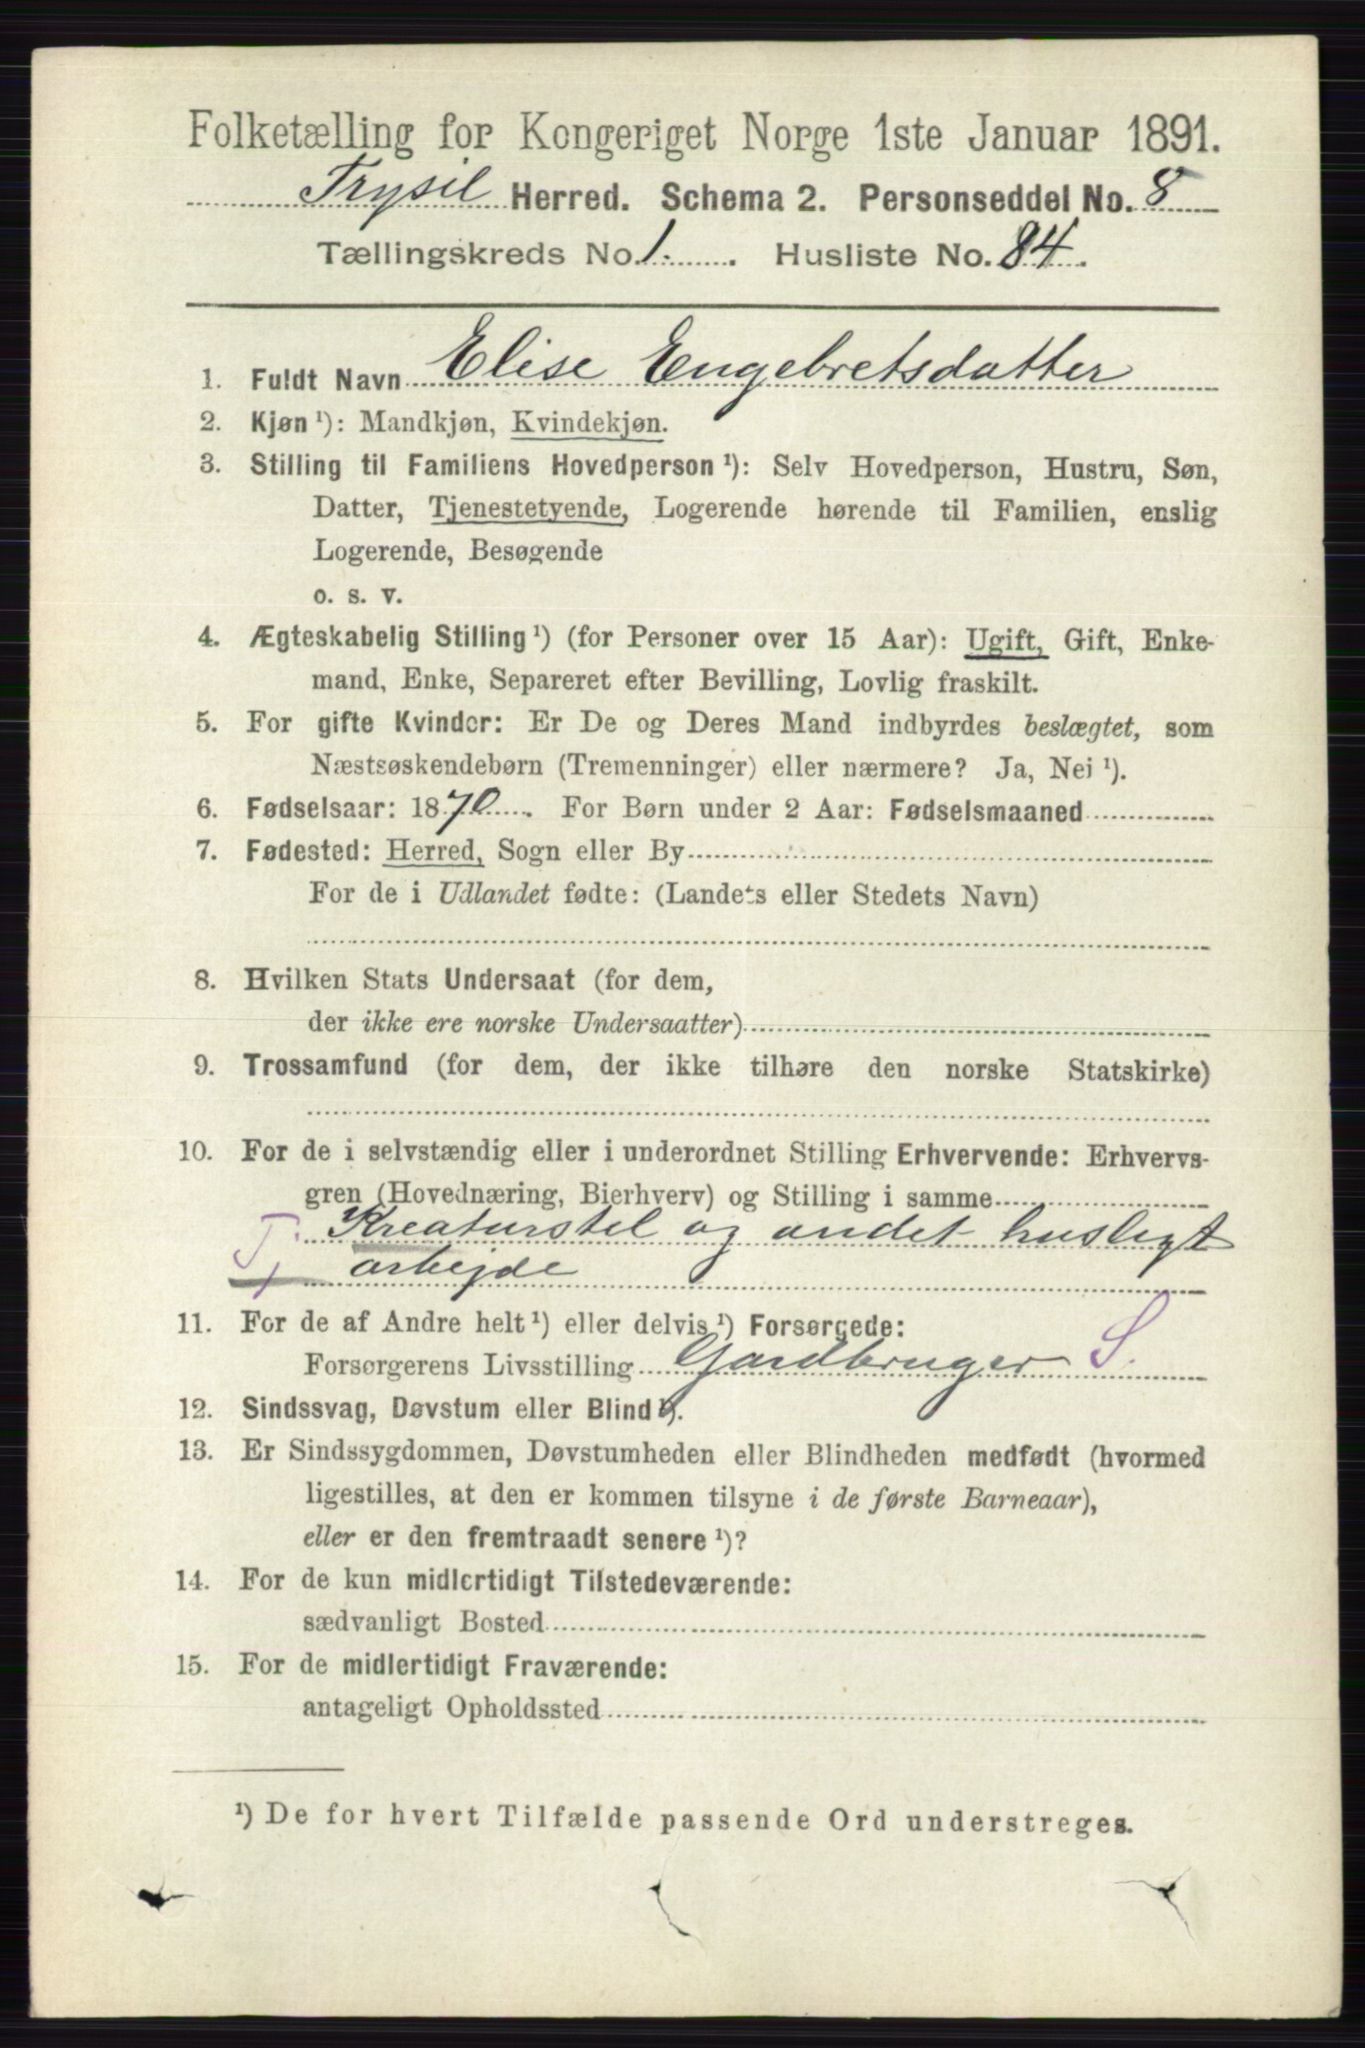 Folketælling for Kongeriget Norge 1ste Januar 1891.
Trysil Herred. Schema 2. Personseddel No. 8
Tællingskreds No. 1. Husliste No. 84.
1. Fuldt Navn Elise Engebretsdatter
2. Kjøn ¹): Mandkjøn, Kvindekjøn.
3. Stilling til Familiens Hovedperson ¹): Selv Hovedperson, Hustru, Søn,
Datter, Tjenestetyende, Logerende hørende til Familien, enslig
Logerende, Besøgende
o. s. v.
4. Ægteskabelig Stilling ¹) (for Personer over 15 Aar): Ugift, Gift, Enke-
mand, Enke, Separeret efter Bevilling, Lovlig fraskilt.
5. For gifte Kvinder: Er De og Deres Mand indbyrdes beslægtet, som
Næstsøskendebørn (Tremenninger) eller nærmere? Ja, Nei ¹).
6. Fødselsaar: 1870. For Børn under 2 Aar: Fødselsmaaned
7. Fødested: Herred, Sogn eller By
For de i Udlandet fødte: (Landets eller Stedets Navn)
8. Hvilken Stats Undersaat (for dem,
der ikke ere norske Undersaatter)
9. Trossamfund (for dem, der ikke tilhøre den norske Statskirke)
10. For de i selvstændig eller i underordnet Stilling Erhvervende: Erhvervs-
gren (Hovednæring, Bierhverv) og Stilling i samme
T. Kreaturstel og andet husligt
arbejde
11. For de af Andre helt ¹) eller delvis ¹) Forsørgede:
Forsørgerens Livsstilling Gardbruger S.
12. Sindssvag, Døvstum eller Blind ¹).
13. Er Sindssygdommen, Døvstumheden eller Blindheden medfødt (hvormed
ligestilles, at den er kommen tilsyne i de første Barneaar),
eller er den fremtraadt senere ¹)?
14. For de kun midlertidigt Tilstedeværende:
sædvanligt Bosted
15. For de midlertidigt Fraværende:
antageligt Opholdssted
¹) De for hvert Tilfælde passende Ord understreges.